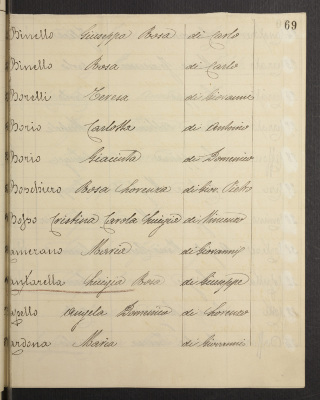 69
Binello Giuseppa Rosa di Carlo
Binello Rosa di Carlo
Borelli Teresa di Giovanni
Borio Carlotta di Antonio
Borio Giacinta di Domenico
Boschiero Rosa Lorenza di Giov. Pietro
Bosso Cristina Carola Luigia di Vincenzo
Camerano Maria di Giovanni
Cantarella Luigia Rosa di Giuseppe
Angela Domenica di Lorenzo
Cardona Maria di Giovanni